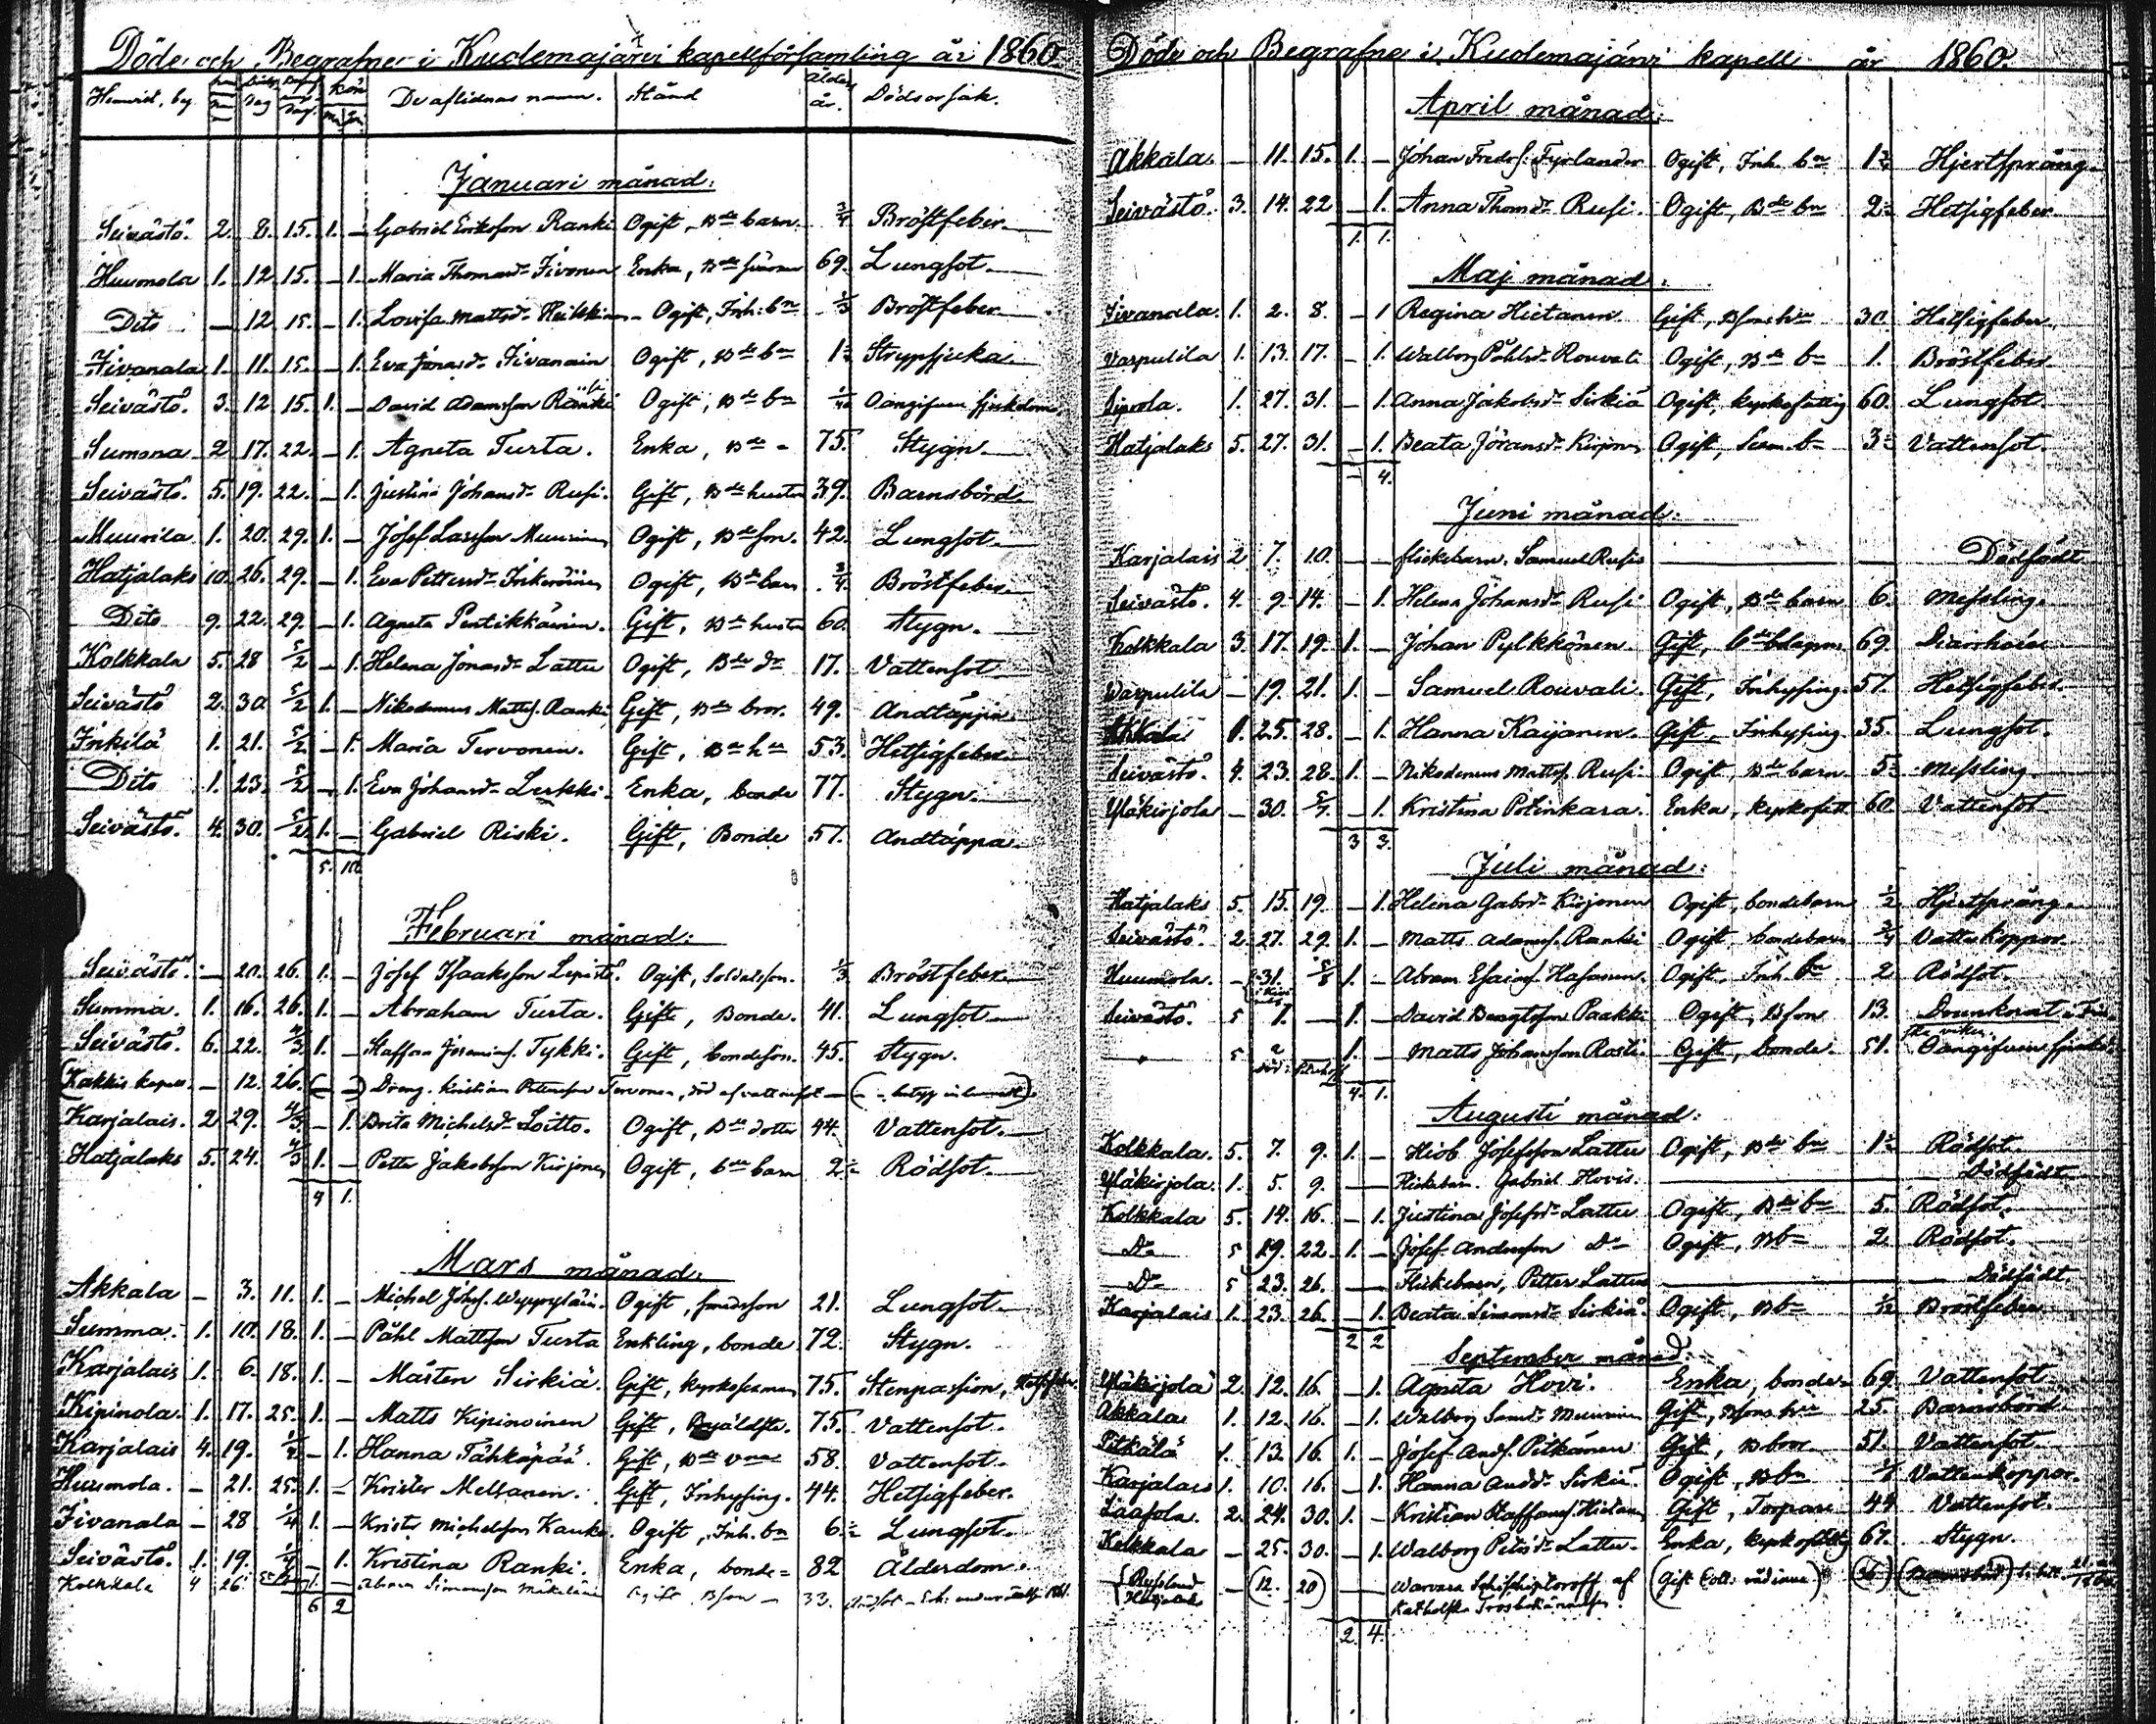 Döde och Begrafne i Kuolemajärvi kapellförsamling år 1860
Hemvist, by Döds Dag Begrafn. Dag. Kön De aflidnas namn. Stånd Ålder år. Dödsorsak.
Januari månad:
Seivästö. 2. 8. 15. 1. — Gabriel Eriksson Ranki Ogift, Bde barn. 3/4 Bröstfeber.
Huumola 1. 12 15. — 1. Maria Thomasdr Iivonen Enka, Bde 69. Lungsot.
Dito — 12 15. — 1. Lovisa Mattsdr Heikkinen Ogift, Inh: bn 1/3 Bröstfeber
Iivanala 1. 11. 15. — 1. Eva Jonasdr Iivanain Ogift, Bde bn 1½ Strypsjuka
Seivästö. 3. 12 15. 1. — David Adamsson Ranki Ogift, Bde bn Oangifven sjukdom
Summa 2 17. 22. — 1. Agneta Turta. Enka, Bde 75. Stygn.
Seivästö. 5. 19. 22. — 1. Justina Johansdr Rusi. Gift, Bde hustru 39. Barnsbörd.
Muurila 1. 20. 29. 1. — Josef Larsson Muurinen Ogift, Bde son. 42. Lungsot.
Hatjalaks 10. 26. 29. — 1. Eva Pettersdr Inkeröinen Ogift, Bde barn 3/4. Bröstfeber.
Dito 9. 22. 29. — 1. Agneta Pentikkäinen. Gift, Bde hustru 60. Stygn.
Kolkkala 5. 28 5/2 — 1. Helena Jonasdr Lattu Ogift, Bde dr 17. Vattensot.
Seivästö 2. 30. 5/2 1. — Nikodemus Mattss. Ranki Gift, Bde bror. 49. Andtäppa.
Inkilä 1. 21. 5/2 — 1. Maria Tervonen. Gift, Bde hu 53. Hetsigfeber.
Dito 1. 23. 5/2 — 1. Eva Johansdr Lukki. Enka, bonde 77. Stygn.
Seivästö. 4. 30. 5/2 1. — Gabriel Riski. Gift, Bonde 57. Andtäppa.
5. 10.
Februari månad:
Seivästö. — 20. 26. 1. — Josef Isaaksson Lepistö. Ogift, Soldatson. 1/3 Bröstfeber.
Summa. 1. 16. 26. 1. — Abraham Turta. Gift, Bonde. 41. Lungsot
Seivästö. 6. 22. 4/3 1. — Staffan Jeremiass. Tykki. Gift, bondeson. 45. Stygn.
(Kakkis kapell — 12. 26. (— —) Dreng. Kristian Pettersson Tervonen, död af vattensot
Karjalais. 2 29. 4/3 — 1. Brita Michelsdr Loitto. Ogift, Bde dotter 44. Vattensot.
Hatjalaks 5. 24. 4/3 1. — Petter Jakobsson Kirjonen Ogift, bde barn 2½ Rödsot.
4 1.
Mars månad:
Akkala — 3. 11. 1. — Michel Johss. Ogift, smedsson 21. Lungsot.
Summa. 1. 10. 18. 1. — Påhl Mattsson Turta Enkling, bonde 72. Stygn.
Karjalais 1. 6. 18. 1. — Mårten Sirkiä. Gift, kyrkosexman 75. Stenpassion,
Kipinola. 1. 17. 25. 1. — Matts Kipinoinen Gift, 75. Vattensot.
Karjalais 4. 19. 1/4 — 1. Hanna Tähkäpää. Gift, Bde 58. Vattensot.
Huumola. — 21. 25. 1. — Krister Meltanen. Gift, Inhysing. 44. Hetsigfeber.
Iivanala — 28 1/4 1. — Krister Michelsson Kauko. Ogift, Inh. bn 6½ Lungsot.
Seivästö. 1. 19. 1/4 — 1. Kristina Ranki. Enka, bonde= 82 Ålderdom.
Kolkkala 4 26 1. — Abram Simonsson Mikelänen Ogift Bson — 33.
6 2
Döde och Begrafne i Kuolemajärvi kapell år 1860.
April månad:
Akkala. — 11. 15. 1. — Johan Fredrss. Fyrlander Ogift, Inh. bn 1½ Hjertsprång.
Seivästö. 3. 14. 22 — 1. Anna Thomsdr Rusi. Ogift, Bde bn 2½ Hetsigfeber.
1. 1.
Maj månad:
Iivanala. 1. 2. 8. — 1 Regina Hietanen. Gift, Bsons hu 30. Hetsigfeber.
Vaspulila 1. 13. 17. — 1. Walborg Påhlsdr Rouvali Ogift, Bde bn 1. Bröstfeber.
Sipola. 1. 27. 31. — 1. Anna Jakobsdr Sirkiä Ogift, kyrkofattig 60. Lungsot.
Hatjalaks 5. 27. 31. — 1. Beata Göransdr Kirjonen Ogift, bn 3½ Vattensot.
— 4.
Juni månad:
Karjalais 2 7. 10. — — flickebarn. Samuel Rusis — — Dödfödt
Seivästö. 4. 9. 14. — 1. Helena Johansdr Rusi Ogift, Bde barn 6. Messling.
Kolkkala 3. 17. 19. 1. — Johan Pylkkönen. Gift, 69. Diarrhoea
Vaspulila — 19. 21. 1. — Samuel Rouvali. Gift, Inhysing. 57. Hetsigfeber.
Akkala 1. 25. 28. — 1. Hanna Kaijanen. Gift, Inhysing 35. Lungsot.
Seivästö. 4. 23. 28. 1. — Nikodemus Mattss. Rusi. Ogift, Bde barn 5½ Messling
Yläkirjola — 30. 5/7. — 1. Kristina Pötinkara. Enka, kyrkofatt 60. Vattensot
3 3.
Juli månad:
Hatjalaks 5. 15. 19. — 1. Helena Gabrdr Kirjonen Ogift, bondebarn ½ Hjertsprång.
Seivästö. 2. 27. 29. 1. — Matts Adamss. Ranki Ogift bondebarn 3/4 Vattukoppor.
Huumola. — 31. 5/8 1. — Abram Esaiass. Hasanen. Ogift, Inh. bn 2 Rödsot.
Seivästö. 5 1. — 1. — David Bengtsson Paakki Ogift, Bson 13. Drunknat
— " — 5 2 1. — Matts Johansson Rasti. Gift, bonde. 51. Oangifven sjukd.
4. 1.
Augusti månad:
Kolkkala. 5. 7. 9. 1. — Hiob Josefsson Lattu Ogift, Bde bn 1½ Rödsot.
Yläkirjola. 1. 5. 9. — Flickebarn. Gabriel Hovis. — Dödfödt
Kolkkala 5. 14. 16. — 1. Justina Josefsdr Lattu Ogift, Bde bn 5. Rödsot.
Do 5 19. 22. 1. — Josef Andersson Do Ogift, Bbn 2 Rödsot.
Do 5 23. 26. — Flickebarn, Petter Lattus — Dödfödt.
Karjalais 1. 23. 26. — 1. Beata Simonsdr Sirkiä. Ogift, Bbn 1/12 Bröstfeber
2 2
September månad:
Yläkirjola 2. 12. 16. — 1. Agneta Hovi. Enka, bonde= 69. Vattensot
Akkala 1. 12. 16. — 1. Walborg Samsdr Muurinen Gift, Bsons hu 25. Barnsbörd.
Pitkälä 1. 13. 16. 1. — Josef Andss. Pitkänen Gift, Bbror. 51. Vattensot.
Karjalais 1. 10. 16. — 1. Hanna Andsdr Sirkiä. Ogift, Bbn Vattenkoppor.
Laasola. 2. 24. 30. 1. — Kristian Staffanss. Hietanen Gift, Torpare 44 Vattensot.
Kolkkala — 25. 30. — 1. Walborg Petersdr Lattu. Enka, kyrkofattig 67. Stygn.
{Ryssland Hatjalaks — (12. 20) — Warvara Schischiptoroff af (Gift Coll: rådinna) (36)
Katholska Trosbekännelsen.
2 4.